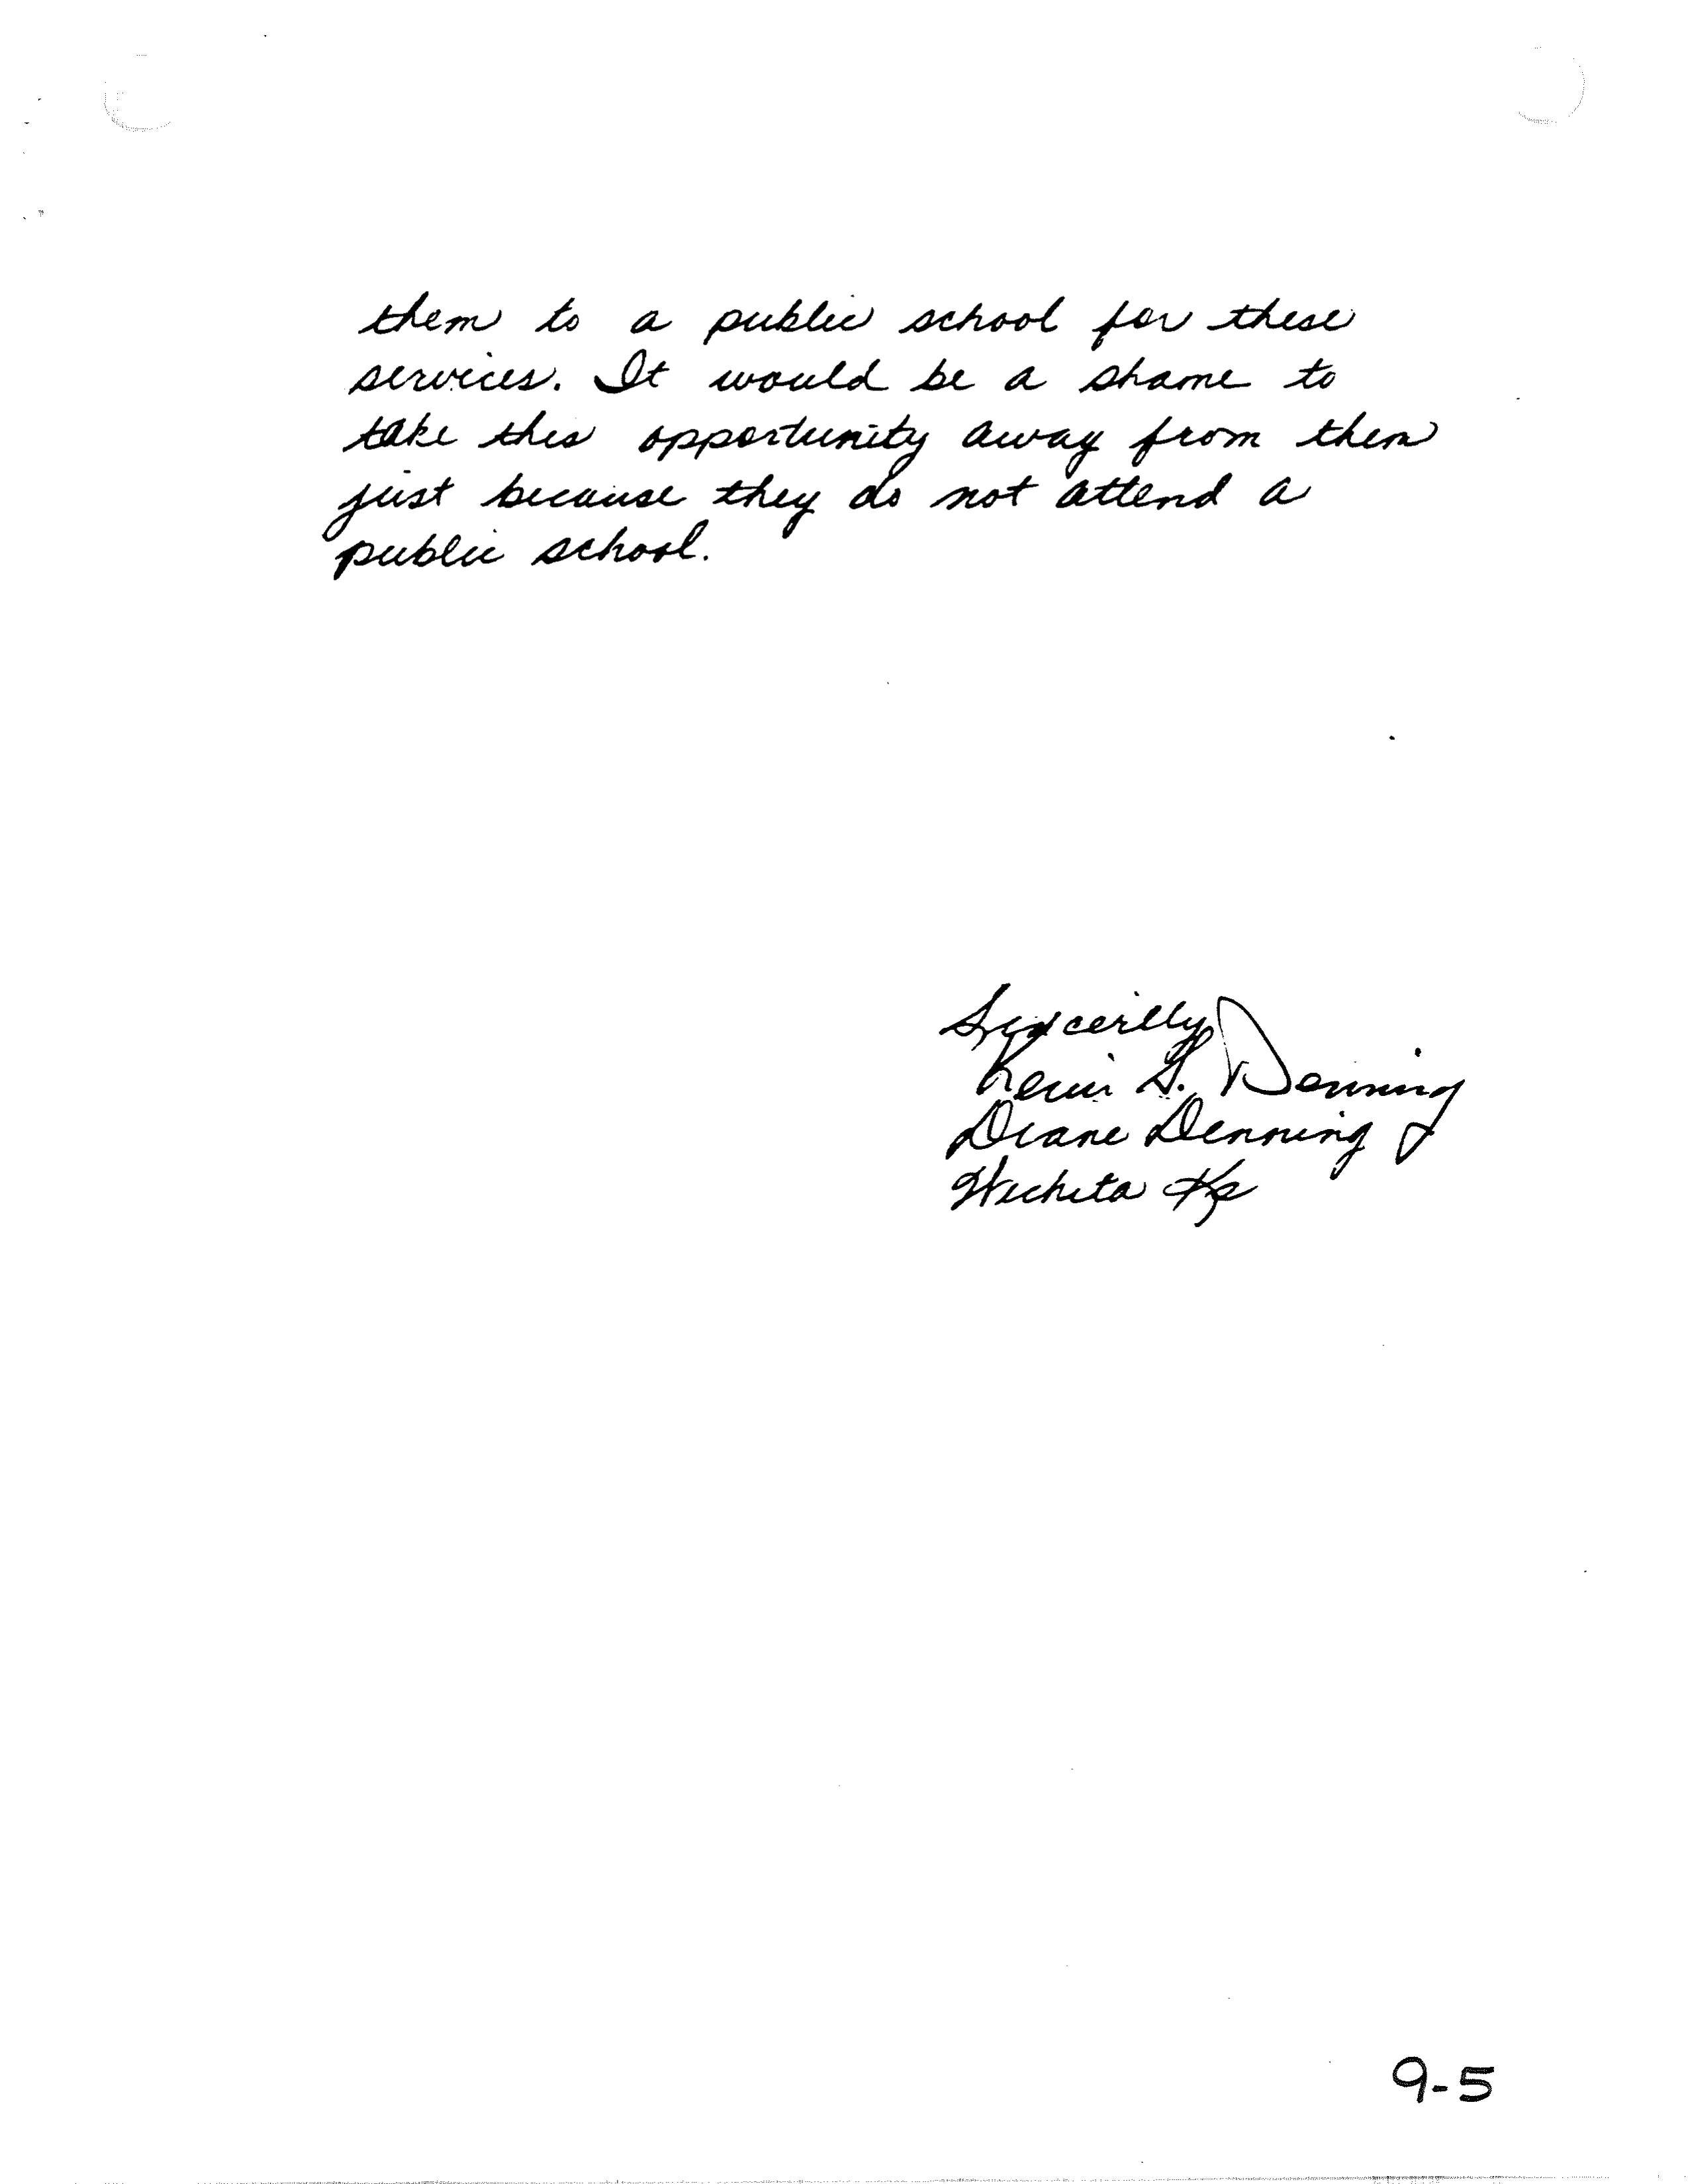 them to a public school for these
services. It would be a shame to
take this opportunity away from them
just because they do not attend a
public school.
Sincerlly
Kevin G. Denning
Diane Denning
Wichita Ks
9-5